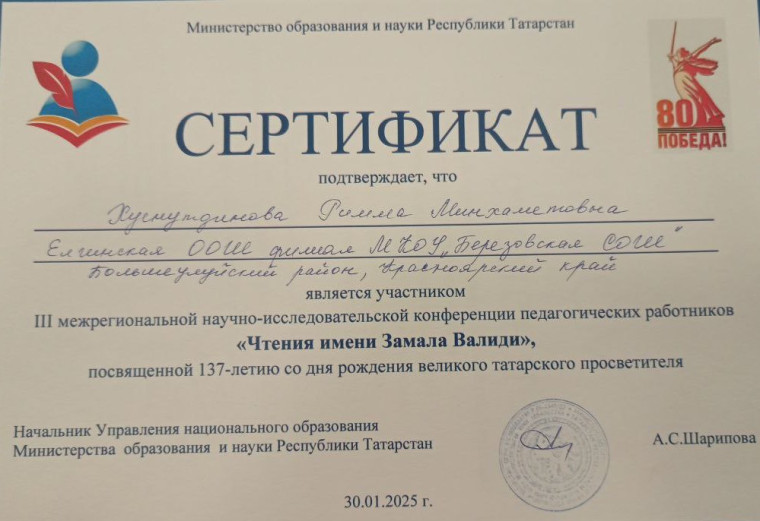 Министерство образования и науки Республики Татарстан
80
ПОБЕДА!
СЕРТИФИКАТ
подтверждает, что
Хуснутдинова Римма Минхаметовна
Елгинская ООШ филиал МКОУ „Березовская СОШ"
Большеулуйский район, Красноярский край
является участником
III межрегиональной научно-исследовательской конференции педагогических работников
«Чтения имени Замала Валиди»,
посвященной 137-летию со дня рождения великого татарского просветителя
Начальник Управления национального образования
Министерства образования и науки Республики Татарстан
А.С.Шарипова
30.01.2025 г.